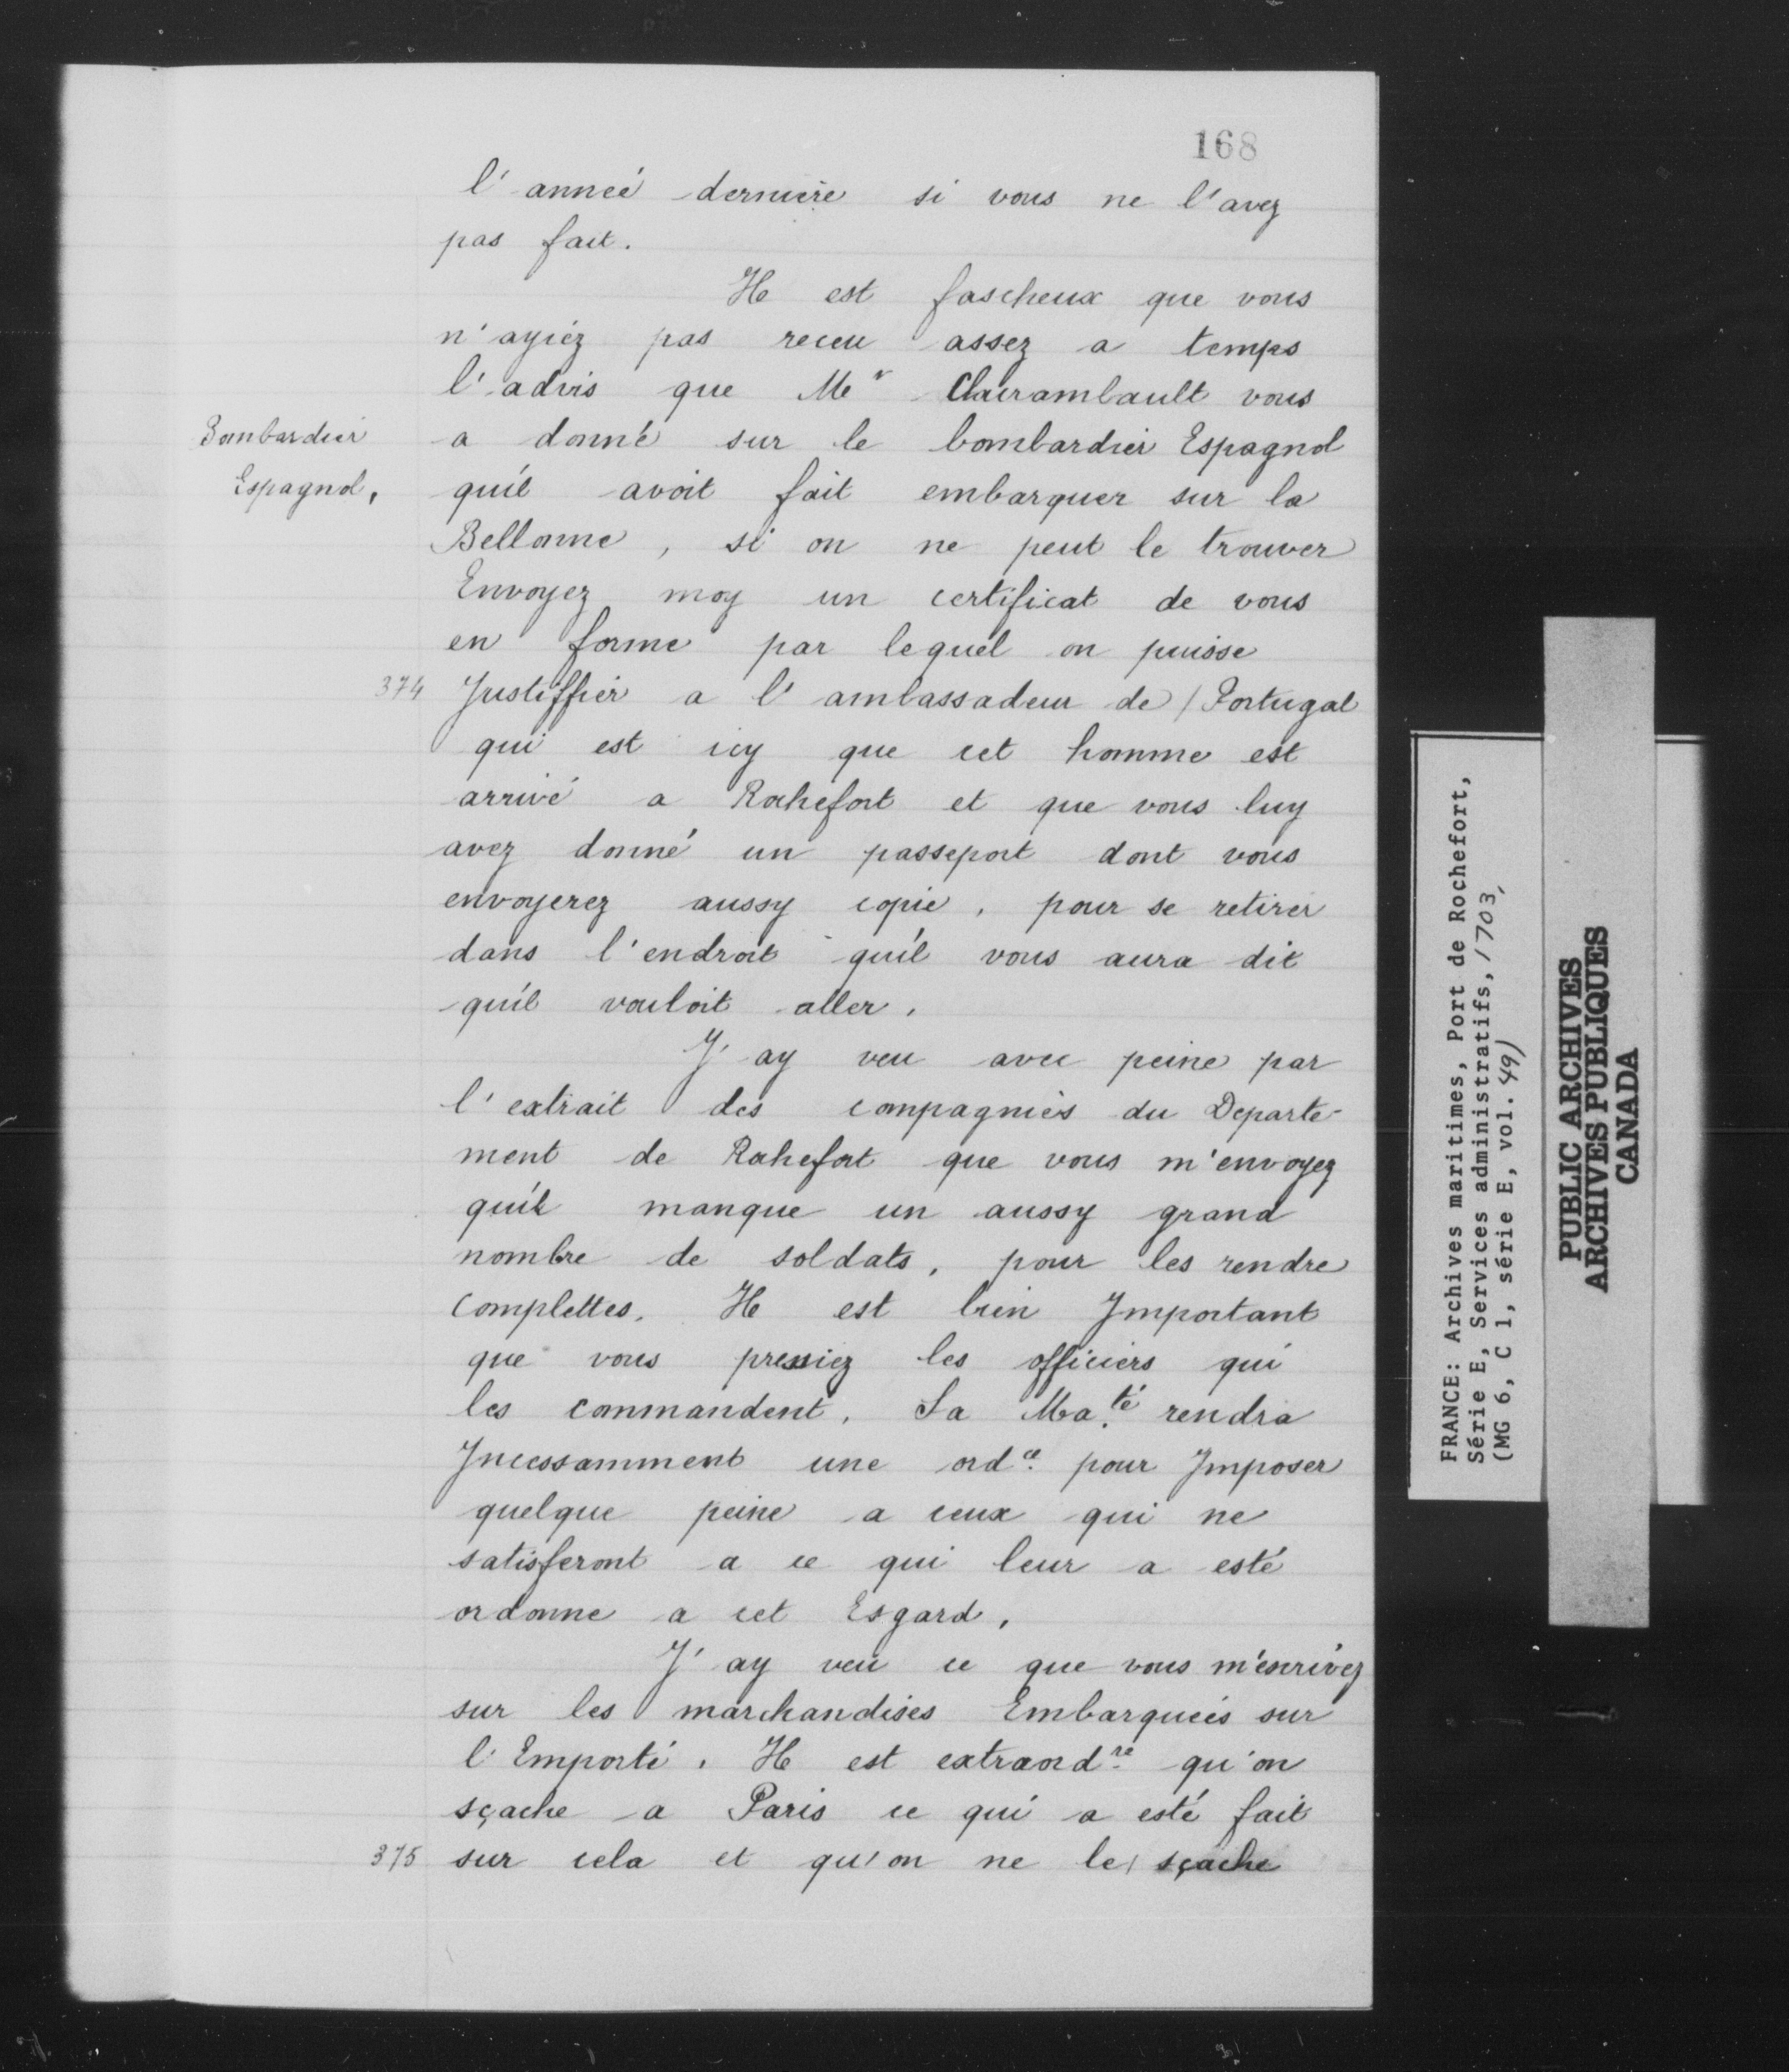 168
l'anneé derniere si vous ne l'avez
pas fait.
Il est fascheux que vous
n'ayiéz pas receu assez a temps
l'advis que Mr Clairambault vous
Bombardier
Espagnol,
a donné sur le bombardier Espagnol
qu'il avoit fait embarquer sur la
Bellonne, si on ne peut le trouver
Envoyez moy un certificat de vous
en forme par lequel on puisse
374 Justiffier a l'ambassadeur de / Portugal
qui est icy que cet homme est
arrivé a Rochefort et que vous luy
avez donné un passeport dont vous
envoyerez aussy copie, pour se retirer
dans l'endroit qu'il vous aura dit
qu'il vouloit aller.
J'ay veu avec peine par
l'extrait des compagnies du Departe-
ment de Rochefort que vous m'envoyez
qu'il manque un aussy grand
nombre de soldats, pour les rendre
complettes. Il est bien Important
que vous pressiez les officiers qui
les commandent. Sa Ma.té rendra
Incessamment une ord.ce pour Imposer
quelque peine a ceux qui ne
satisferont a ce qui leur a esté
ordonne a cet Esgard.
J'ay veu ce que vous m'escrivez
sur les marchandises Embarqueés sur
l'Emporté. Il est extraord.re qu'on
sçache a Paris ce qui a esté fait
375 sur cela et qu'on ne le / sçache
FRANCE: Archives maritimes, Port de Rochefort,
Série E, Services administratifs, 1703,
(MG 6, C 1, série E, vol. 49)
PUBLIC ARCHIVES
ARCHIVES PUBLIQUES
CANADA